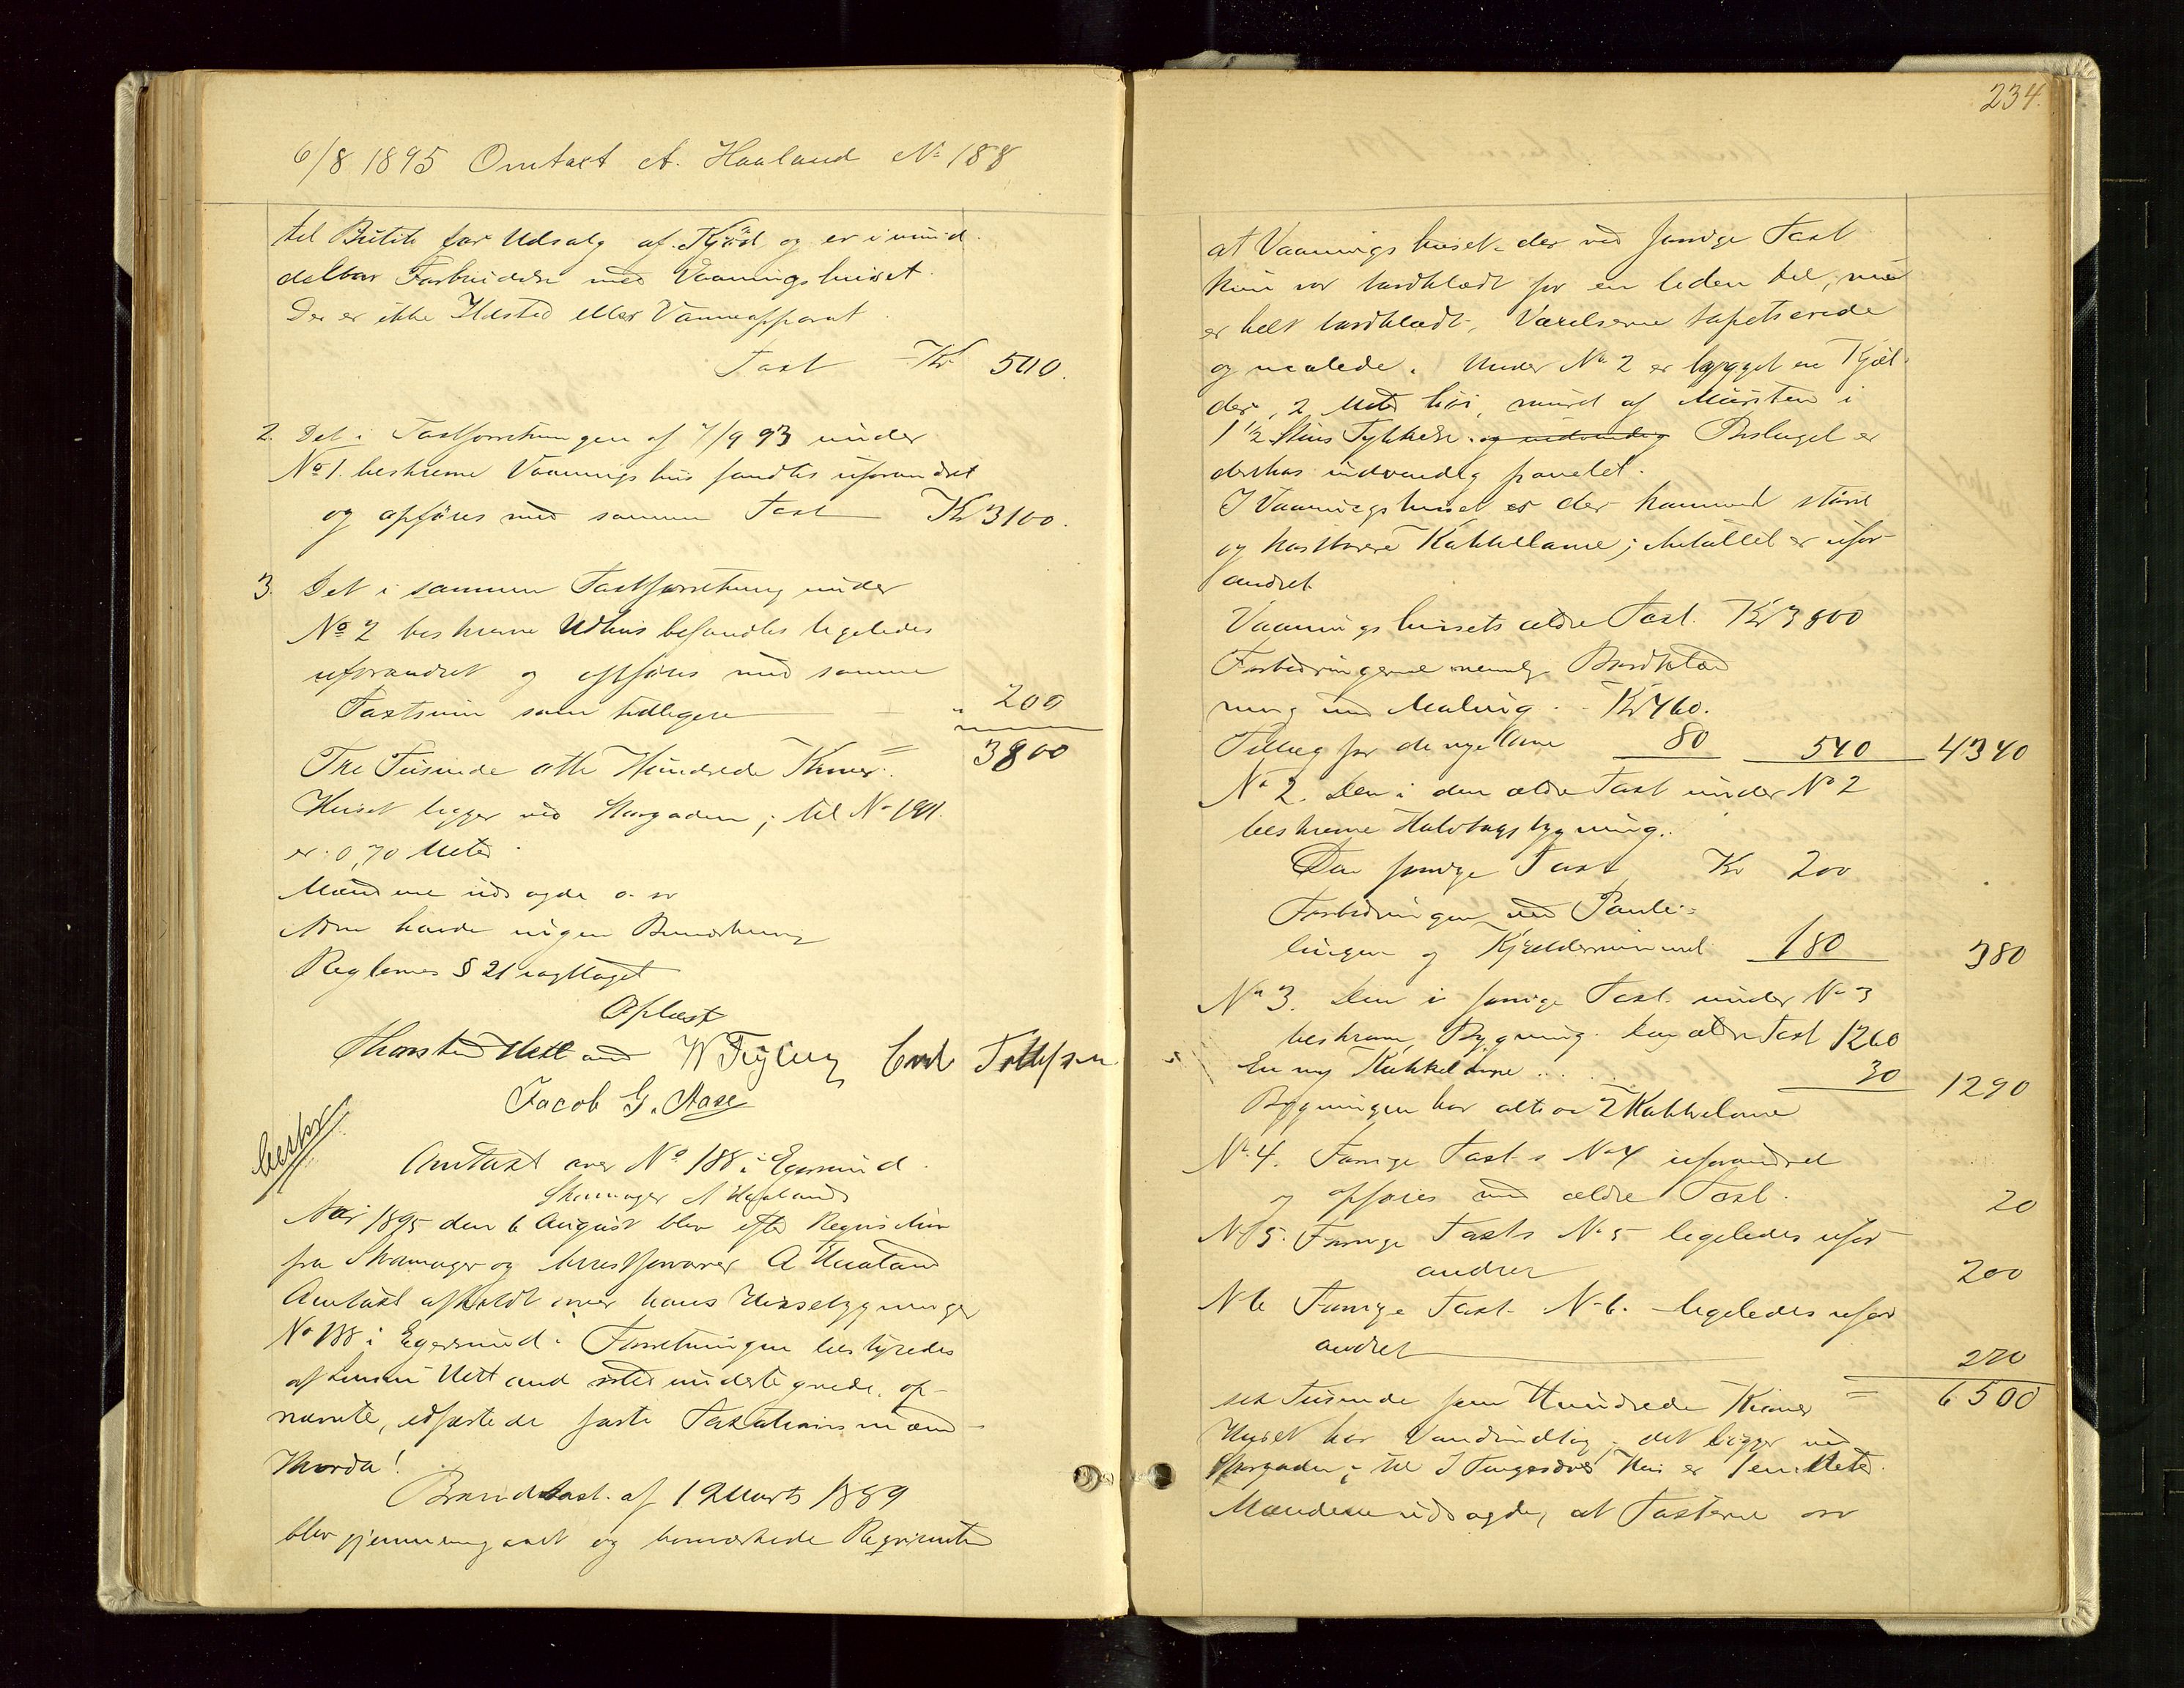 6/8 1895 Omtaxt A. Haaland No 188
til Butik for Udsalg af Kjød og er i umid
delbar Forbindelse med Vaaningshuset.
Der er ikke Ildsted eller Varmeapparat.
Taxt Kr 500.
2. Det i Taxtforretningen af 7/9 93 under
No 1. beskrevne Vaaningshus fandtes uforandret
og opføres med samme Taxt Kr 3100.
3. Det i samme Taxtforretning under
No 2 beskrevne Udhus befandtes ligeledes
uforandret og opføres med samme
Taxtsum som tidligere " 200
Tre Tusinde otte Hundrede Kroner = 3800
Huset ligger ved Storgaden; til No 191.
er 0,70 Meter.
Mændene udsagde o. sv
Aase havde ingen Bemærkning
Reglernes § 21 iagttaget
Oplæst
Thorsten Hetland W Feyling Emil Tollefsen
Jacob G. Aase
beskr
Omtaxt over No 188 i Egersund.
Skomager A Haalands
Aar 1895 den 6 August blev efter Requisition
fra Skomager og A Haaland
Omtaxt afholdt over hans Husebygninger
No 188 i Egersund. Forretningen bestyredes
af Hetland med undertegnede, op-
nævnte, edfæstede faste Taxationsmænd
Hvorda!
Brandtaxt af 19 Marts 1889
blev gjennemgaaet og bemærkede Requirenten
234.
at Vaaningshuset der ved forrige Taxt
kun var bordklædt for en liden del, nu
er helt bordklædt, Værelserne tapetserede
og malede. Under No 2 er bygget en Kjæl-
der, 2 Meter høi, muret af Mursten i
1 1/2 Stens Tykkelse. og indvendig Beslaget er
derhos indvendig panelet.
I Vaaningshuset er der kommet større
og kostbarere Kakkelovne; Antallet er ufor-
andret.
Vaaningshusets ældre Taxt. Kr 3800
Forbedringerne nemlig Bordklæd
ning med Maling. Kr 460.
Tillæg for de nye Ovne 80 540 4340
No 2. Den i den ældre Taxt under No 2
beskrevne Halvtagsbygning.
Den forrige Taxt Kr 200
Forbedringen ved Pane-
lingen og Kjelderrummet 180 380
No 3. Den i forrige Taxt under No 3
beskrevne Bygning. ældre Taxt 1260
En ny Kakkelovn 30 1290
Bygningen har altsaa 2 Kakkelovne
No 4. Forrige Taxts No 4 uforandret
og opføres med ældre Taxt. 20
No 5. Forrige Taxts No 5 ligeledes ufor-
andret 200
No 6 Forrige Taxts No 6. ligeledes ufor
andret 270
sex Tusinde fem Hundrede Kroner = 6500
Huset har Vandindlæg; det ligger ved
Storgaden; til Hus er 1 en Meter.
Mændene udsagde, at Taxterne osv